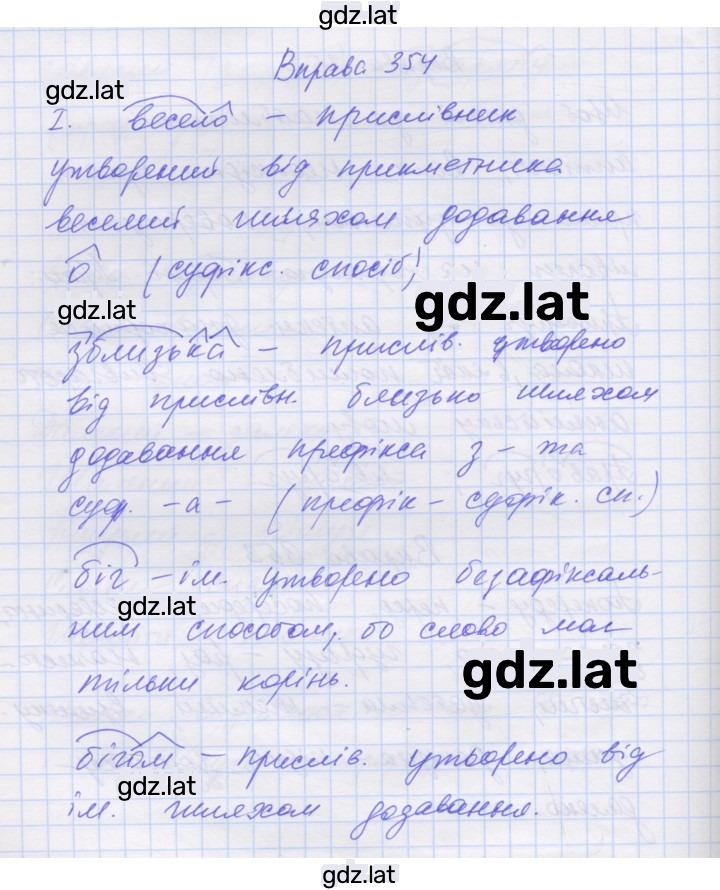 gdz.lat
Вправа 354
gdz.lat
I. весело – прислівник
утворений від прикметника
веселий шляхом додавання
о (суфікс. спосіб)
gdz.lat
gdz.lat
зблизька – прислів. утворено
від прислівн. близько шляхом
додавання префікса з – та
суф. -а- (префік – суфік. сп.)
біг – ім. утворено безафіксаль-
gdz.lat
ним способом, бо слово має
тільки корінь.
gdz.lat
бігом – прислів. утворено від
gdz.lat
ім. шляхом додавання.
gdz.lat